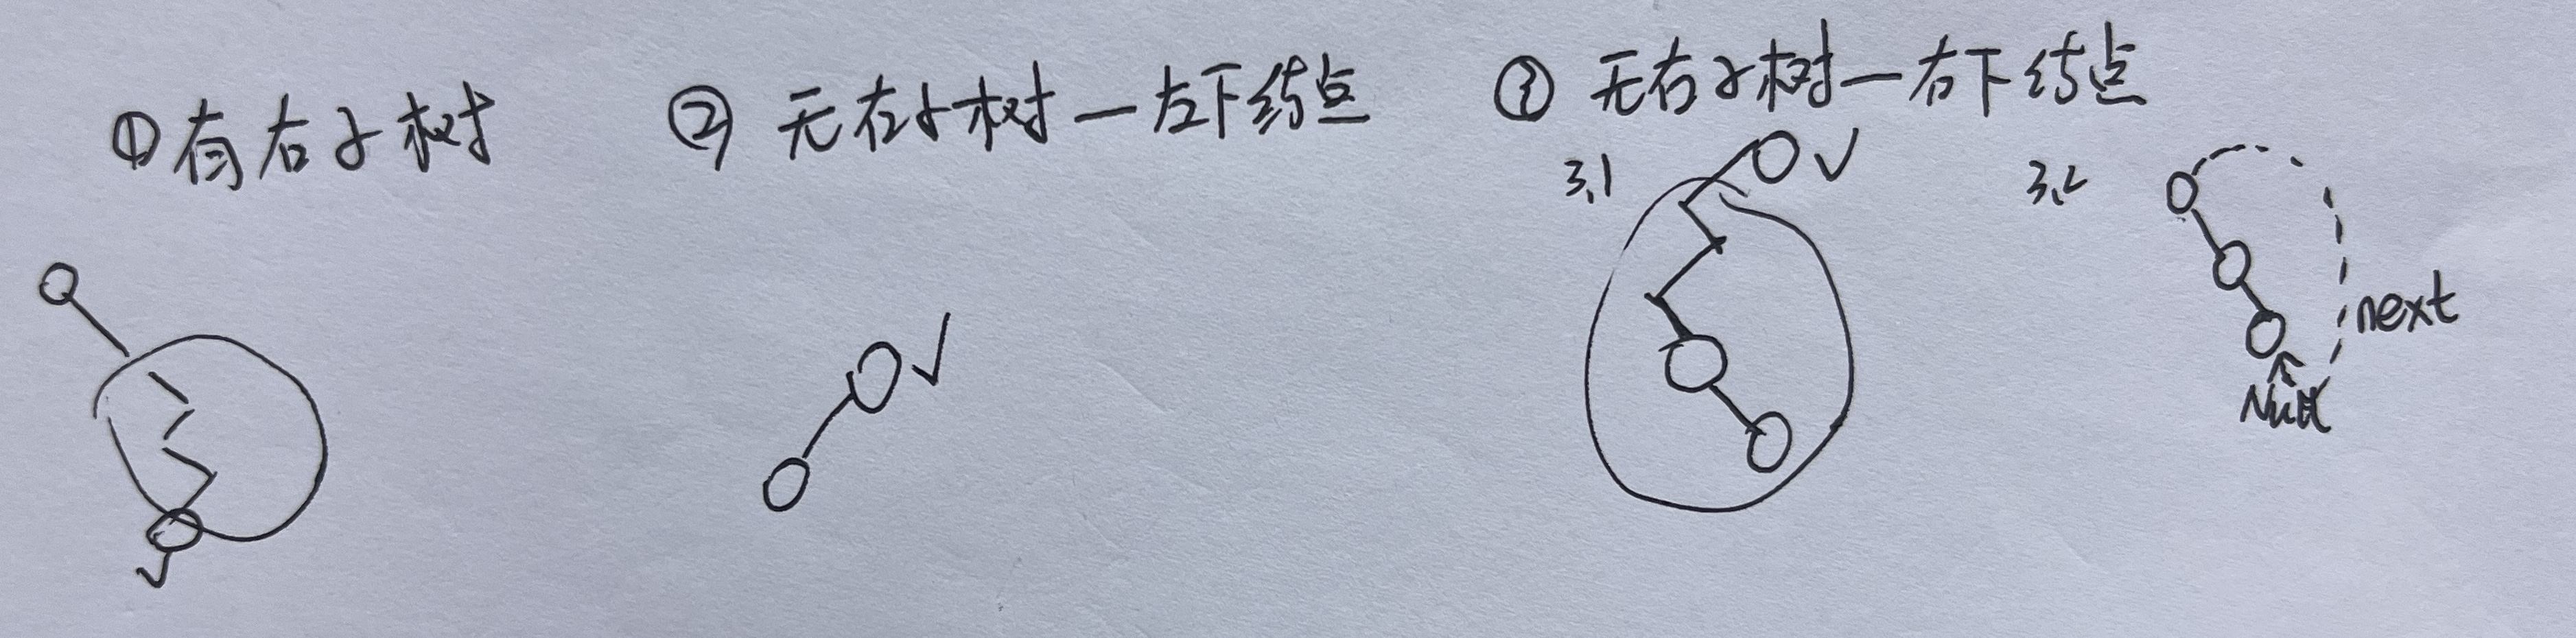 ① 有右子树
② 无右子树一左下结点
③ 无右子树一右下结点
3.1
3.2
next
Null